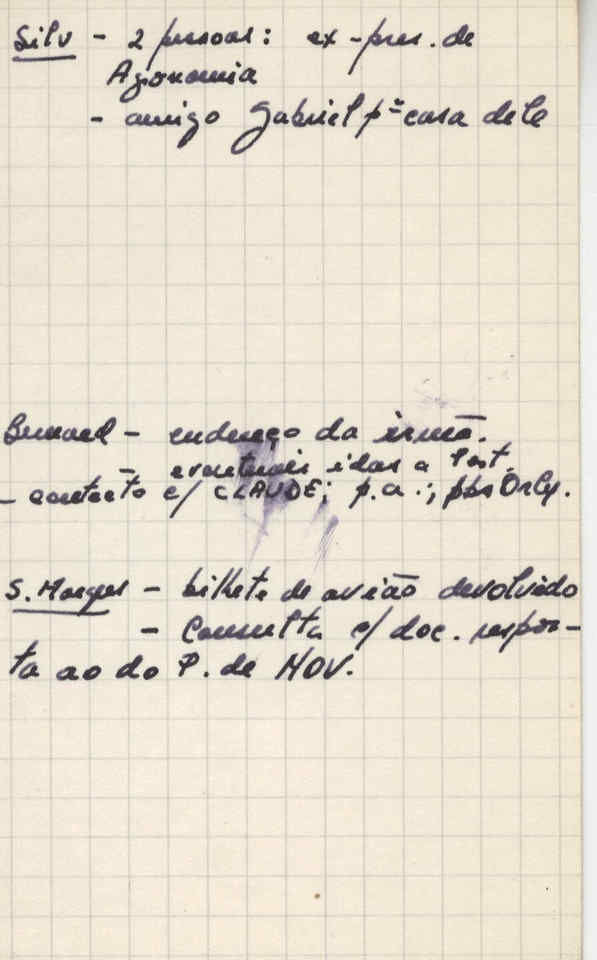 Silv - 2 pessoas: ex-pres. de
Agronomia
- amigo Gabriel pª casa dele
Bernard - endereço da irmã.
- eventuais idas a Port.
- contacto c/ CLAUDE; p.a.; Orly.
S. Marques - bilhete de avião devolvido
- Consulta c/ doc. respos-
ta ao do P. de NOV.